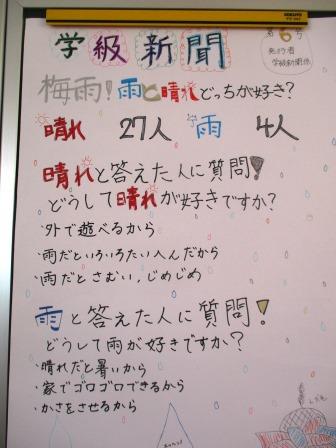 学級新聞
第6号
発行者
学級新聞係
梅雨!雨と晴れどっちが好き?
晴れ 27人 雨 4人
晴れと答えた人に質問!
どうして晴れが好きですか?
・外で遊べるから
・雨だといろいろたいへんだから
・雨だとさむい,じめじめ
雨と答えた人に質問!
どうして雨が好きですか?
・晴れだと暑いから
・家でゴロゴロできるから
・かさをさせるから